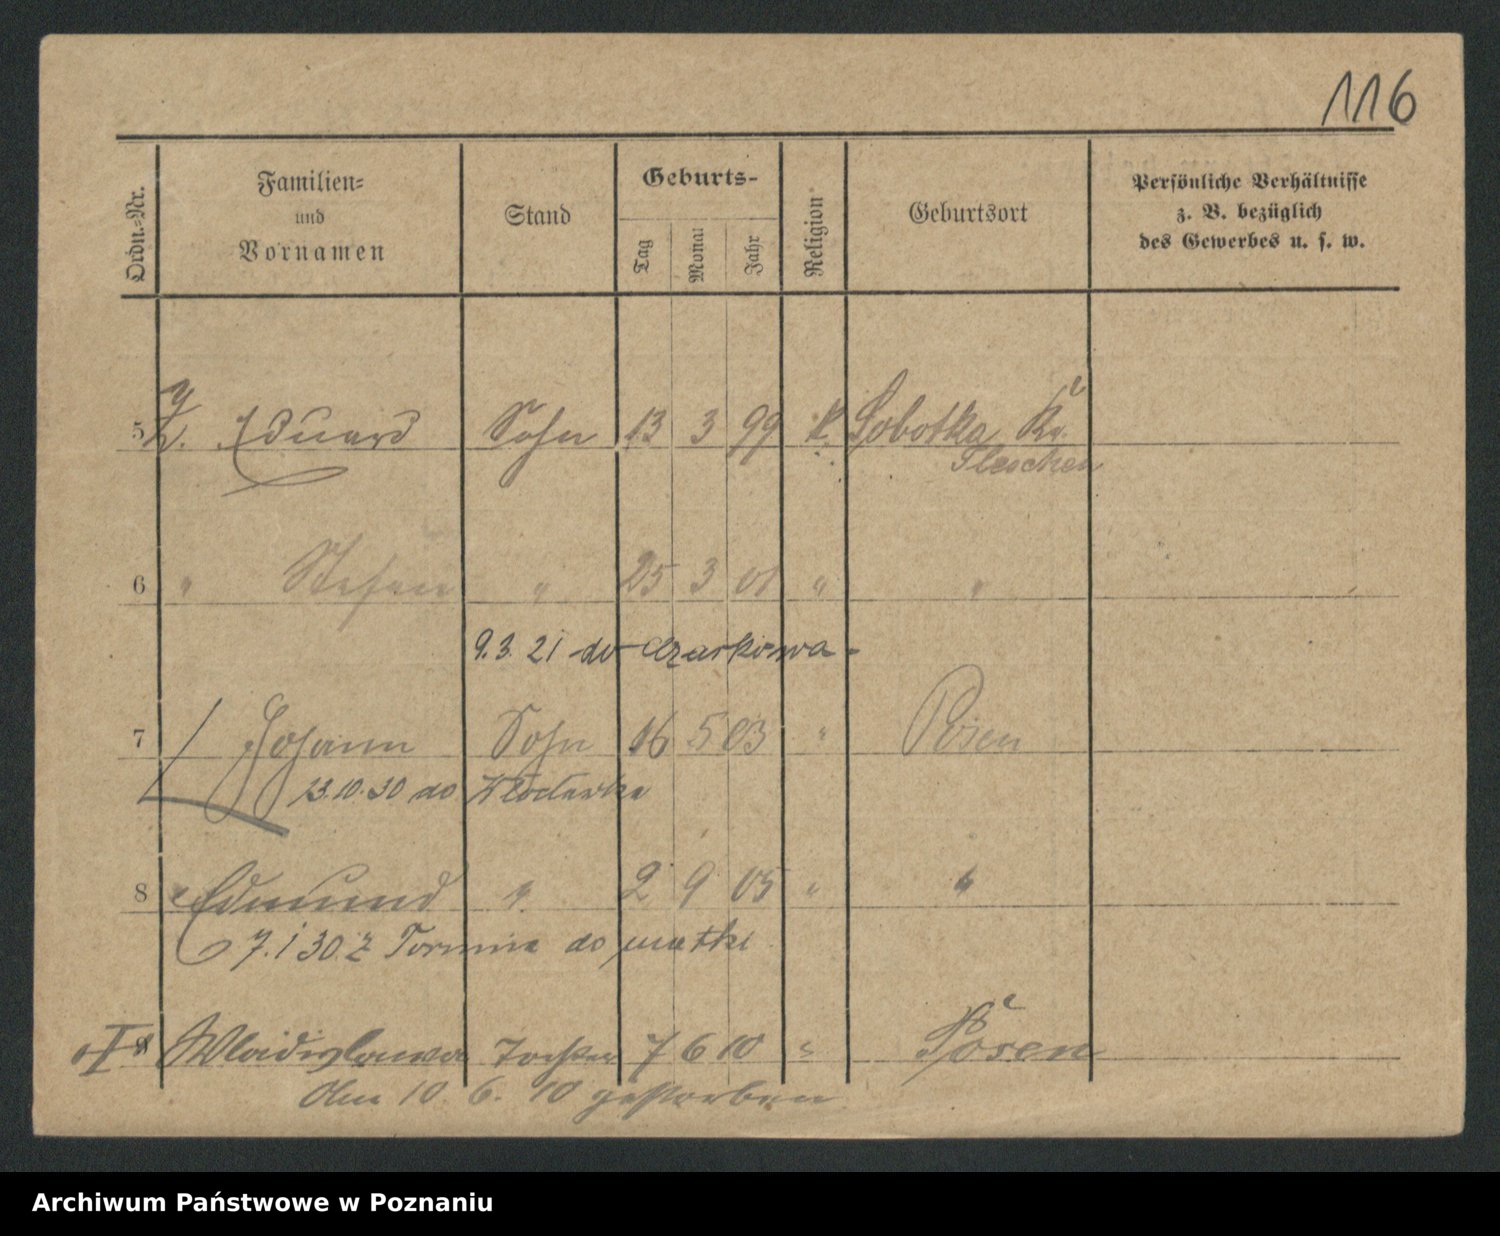 116
Ordn.-Nr. Familien- und Vornamen Stand Geburts- Tag Monat Jahr Religion Geburtsort Persönliche Verhältnisse z. B. bezüglich des Gewerbes u. s. w.
5 Eduard Sohn 13 3 99 k. Sobotka Kr.
Pleschen
6 " Stefan " 25 3 01 " "
9.3.21 do Czarkowa
7 Johann Sohn 16 5 03 " Posen
23.10.30 do
8 Edmund " 2 9 05 " "
7.1 30. z Torunia do matki
Wladislawa Tochter 7 6 10 " Posen
Am 10. 6. 10 gestorben
Archiwum Państwowe w Poznaniu